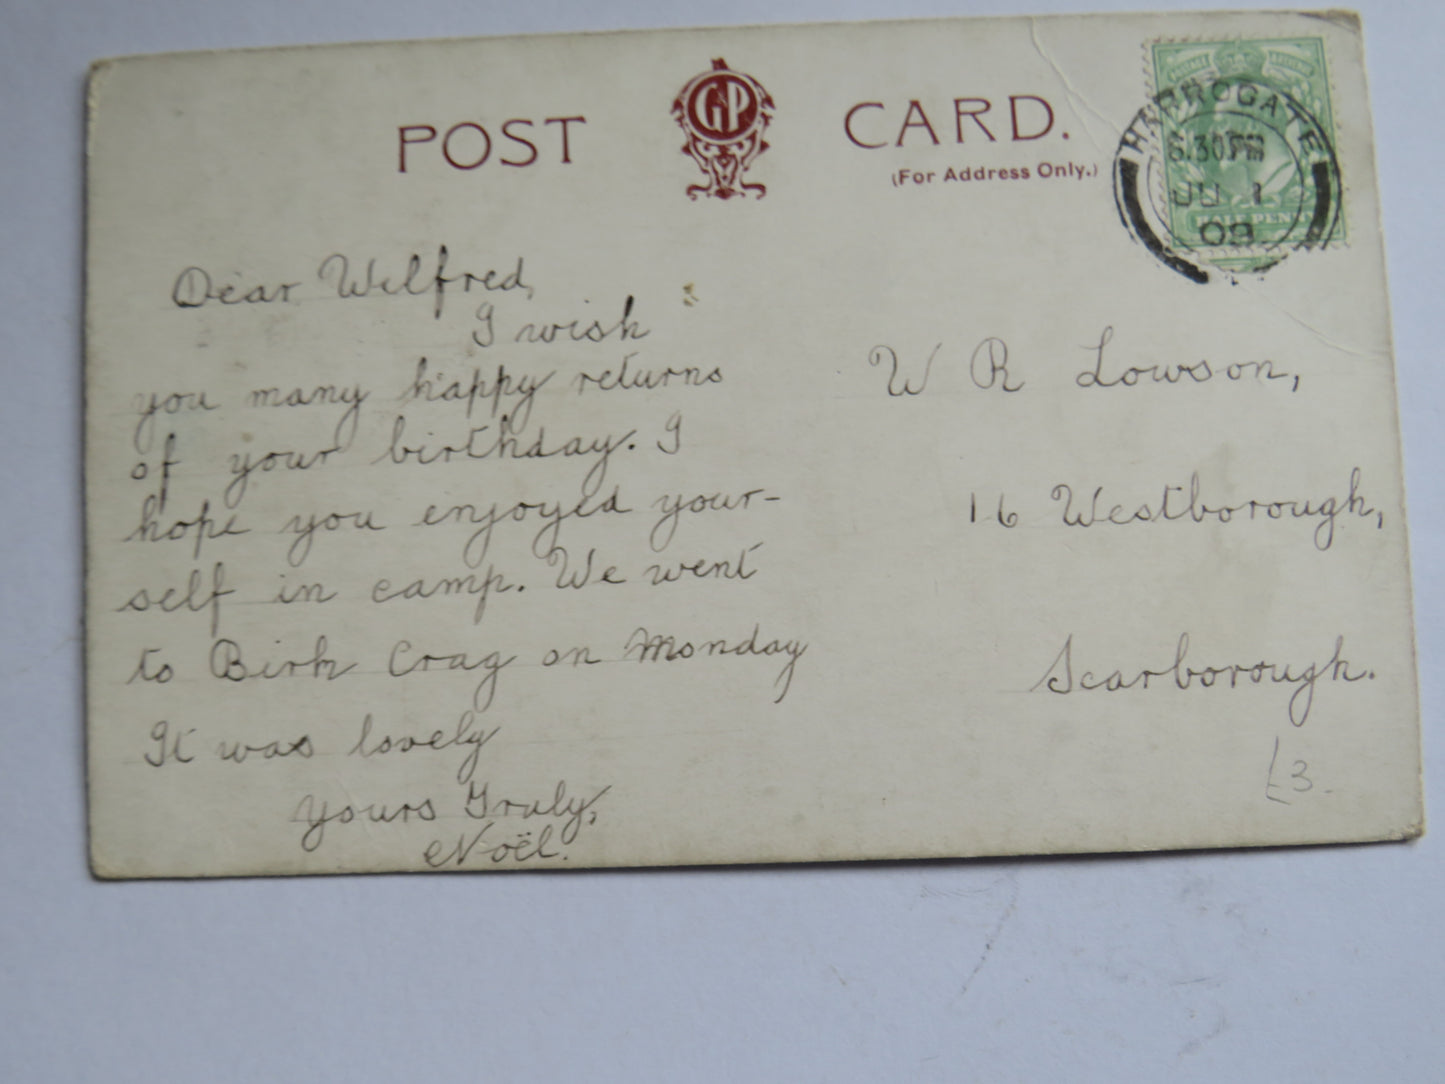 POST GP CARD.
(For Address Only.)
HARROGATE
6.30PM
JU 1
09
HALFPENNY
Dear Wilfred,
I wish
you many happy returns
of your birthday. I
hope you enjoyed your-
self in camp. We went
to Birk Crag on Monday
It was lovely
yours Truly,
Noël.
W R Lowson,
16 Westborough,
Scarborough.
£3.